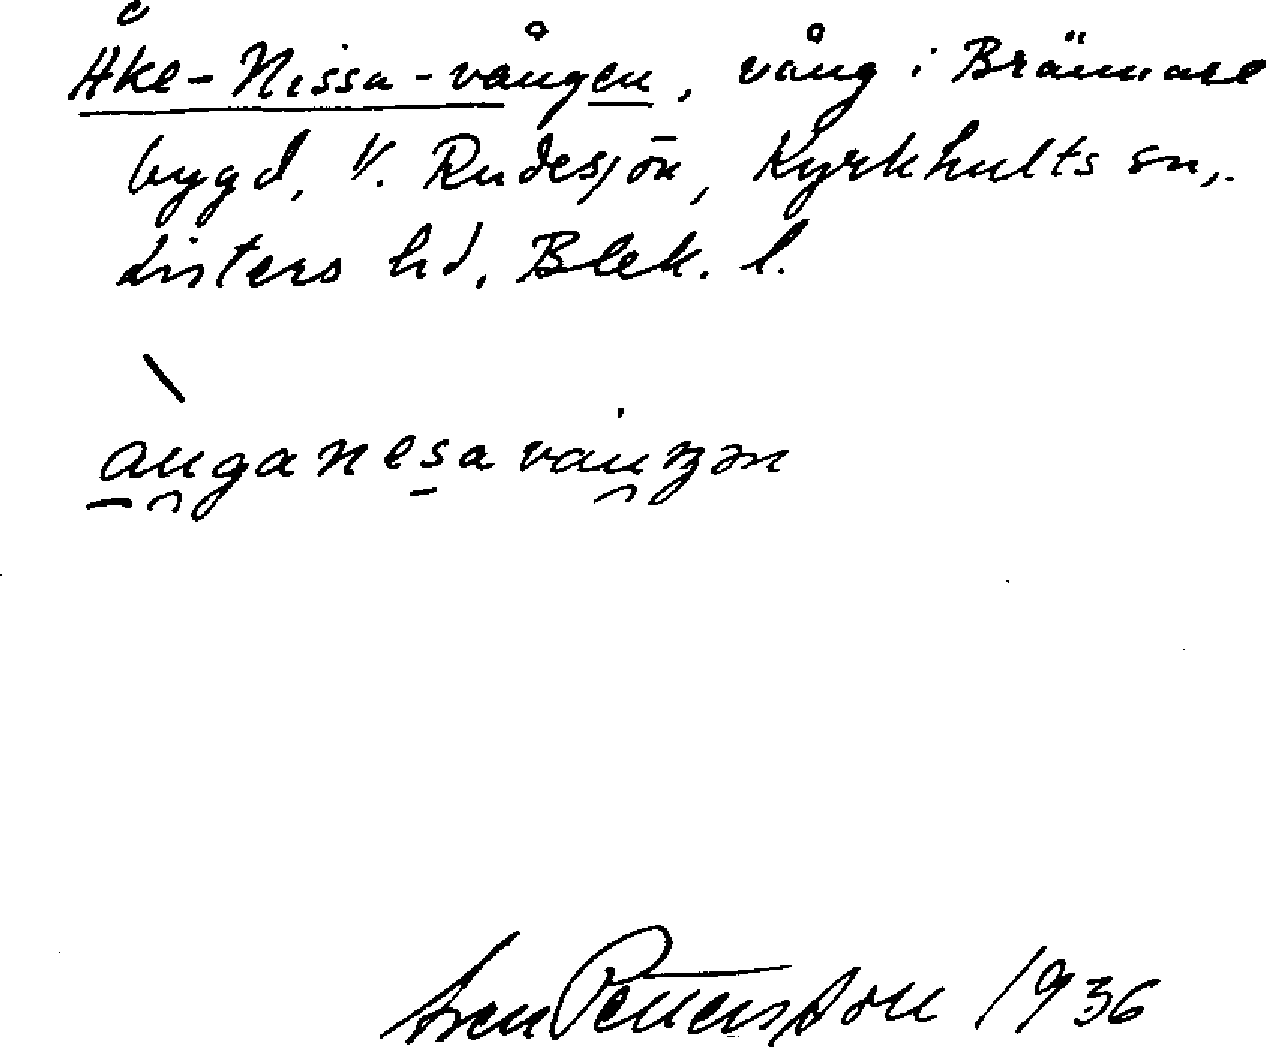 Åke-Nissa-vången, vång i Brännare
bygd, V. Rudesjön, Kyrkhults sn,.
Listers hd. Blek. l.
auganesa vauŋən
Sven Pettersson 1936